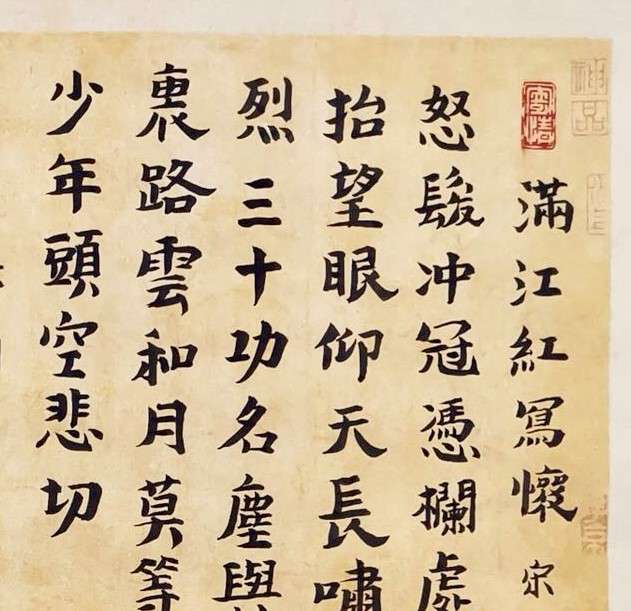 神品
滿江紅冩懷 宋
怒髮冲冠憑欄處
抬望眼仰天長嘯
烈三十功名塵與
裏路雲和月莫等
少年頭空悲切